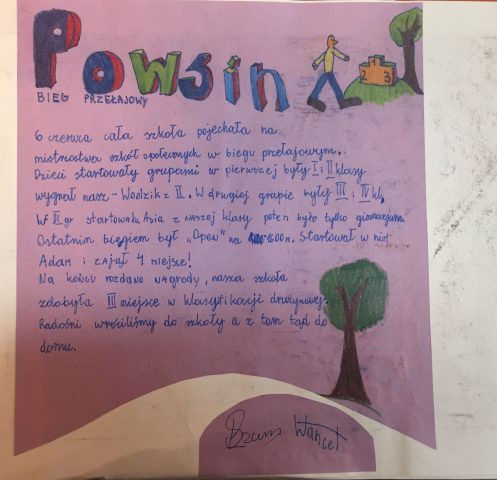 Powsin
BIEG PRZEŁAJOWY
2 1 3
6 czerwca cała szkoła pojechała na
mistrzostwa szkół społecznych w biegu przełajowym.
Dzieci startowały grupami w pierwszej były I i II klasy
wygrał nasz - Wodzik z II. W drugiej grupie były III i IV kl,
W II gr startowała Asia z naszej klasy potem było tylko gimnazjum
Ostatnim biegiem był „Open" na 1600 m. Startował w nim
Adam i zajął 4 miejsce!
Na końcu rozdano nagrody, nasza szkoła
zdobyła III miejsce w klasyfikacji drużynowej.
Radośni wróciliśmy do szkoły a z tam tąd do
domu.